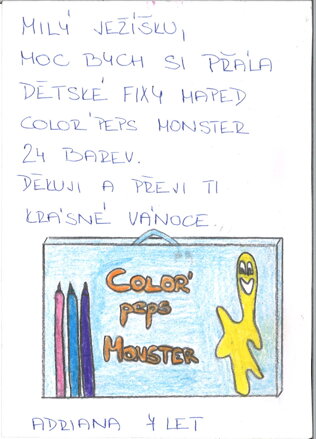 MILÝ JEŽÍŠKU,
MOC BYCH SI PŘÁLA
DĚTSKÉ FIXY MAPED
COLOR'PEPS MONSTER
24 BAREV.
DĚKUJI A PŘEJI TI
KRÁSNÉ VÁNOCE.
COLOR'
PEPS
MONSTER
ADRIANA 7 LET